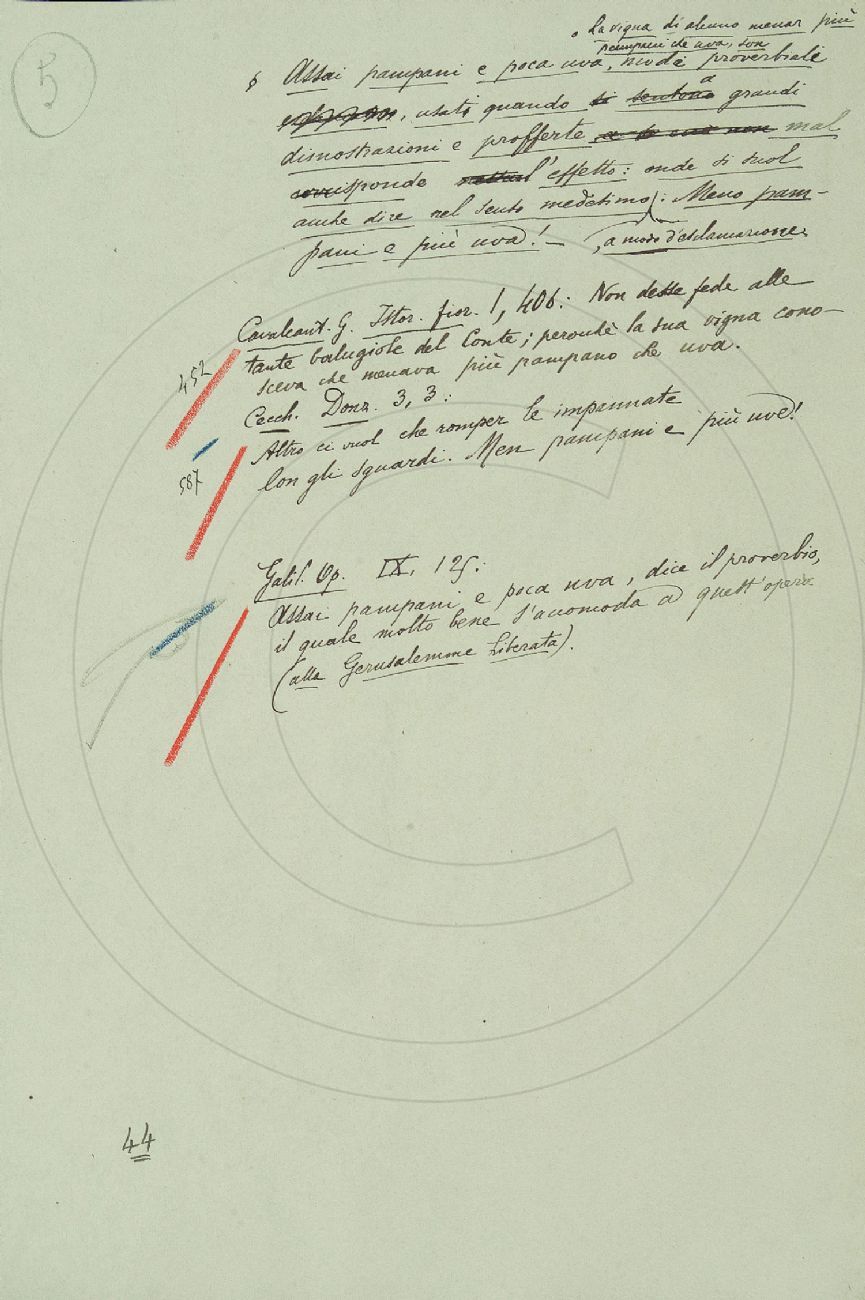 5
o La vigna di alcuno menar più
pampani che uva, son
§ Assai pampani e poca uva, modi proverbiali
usati quando a grandi
dimostrazioni e profferte mal
corrisponde l'effetto: onde si suol
anche dire nel senso medesimo: Meno pam-
pani e più uva! — , a modo d'esclamazione.
Cavalcant. G. Istor. fior. 1, 406: Non desse fede alle
tante balugiole del Conte; perocchè la sua vigna cono-
sceva che menava più pampano che uva.
452
Cecch. Donz. 3, 3:
Altro ci vuol che romper le impannate
Con gli sguardi. Men pampani e più uve!
587
Galil. Op. IX, 125:
Assai pampani e poca uva, dice il proverbio,
il quale molto bene s'accomoda a quest'opera
(alla Gerusalemme Liberata).
44